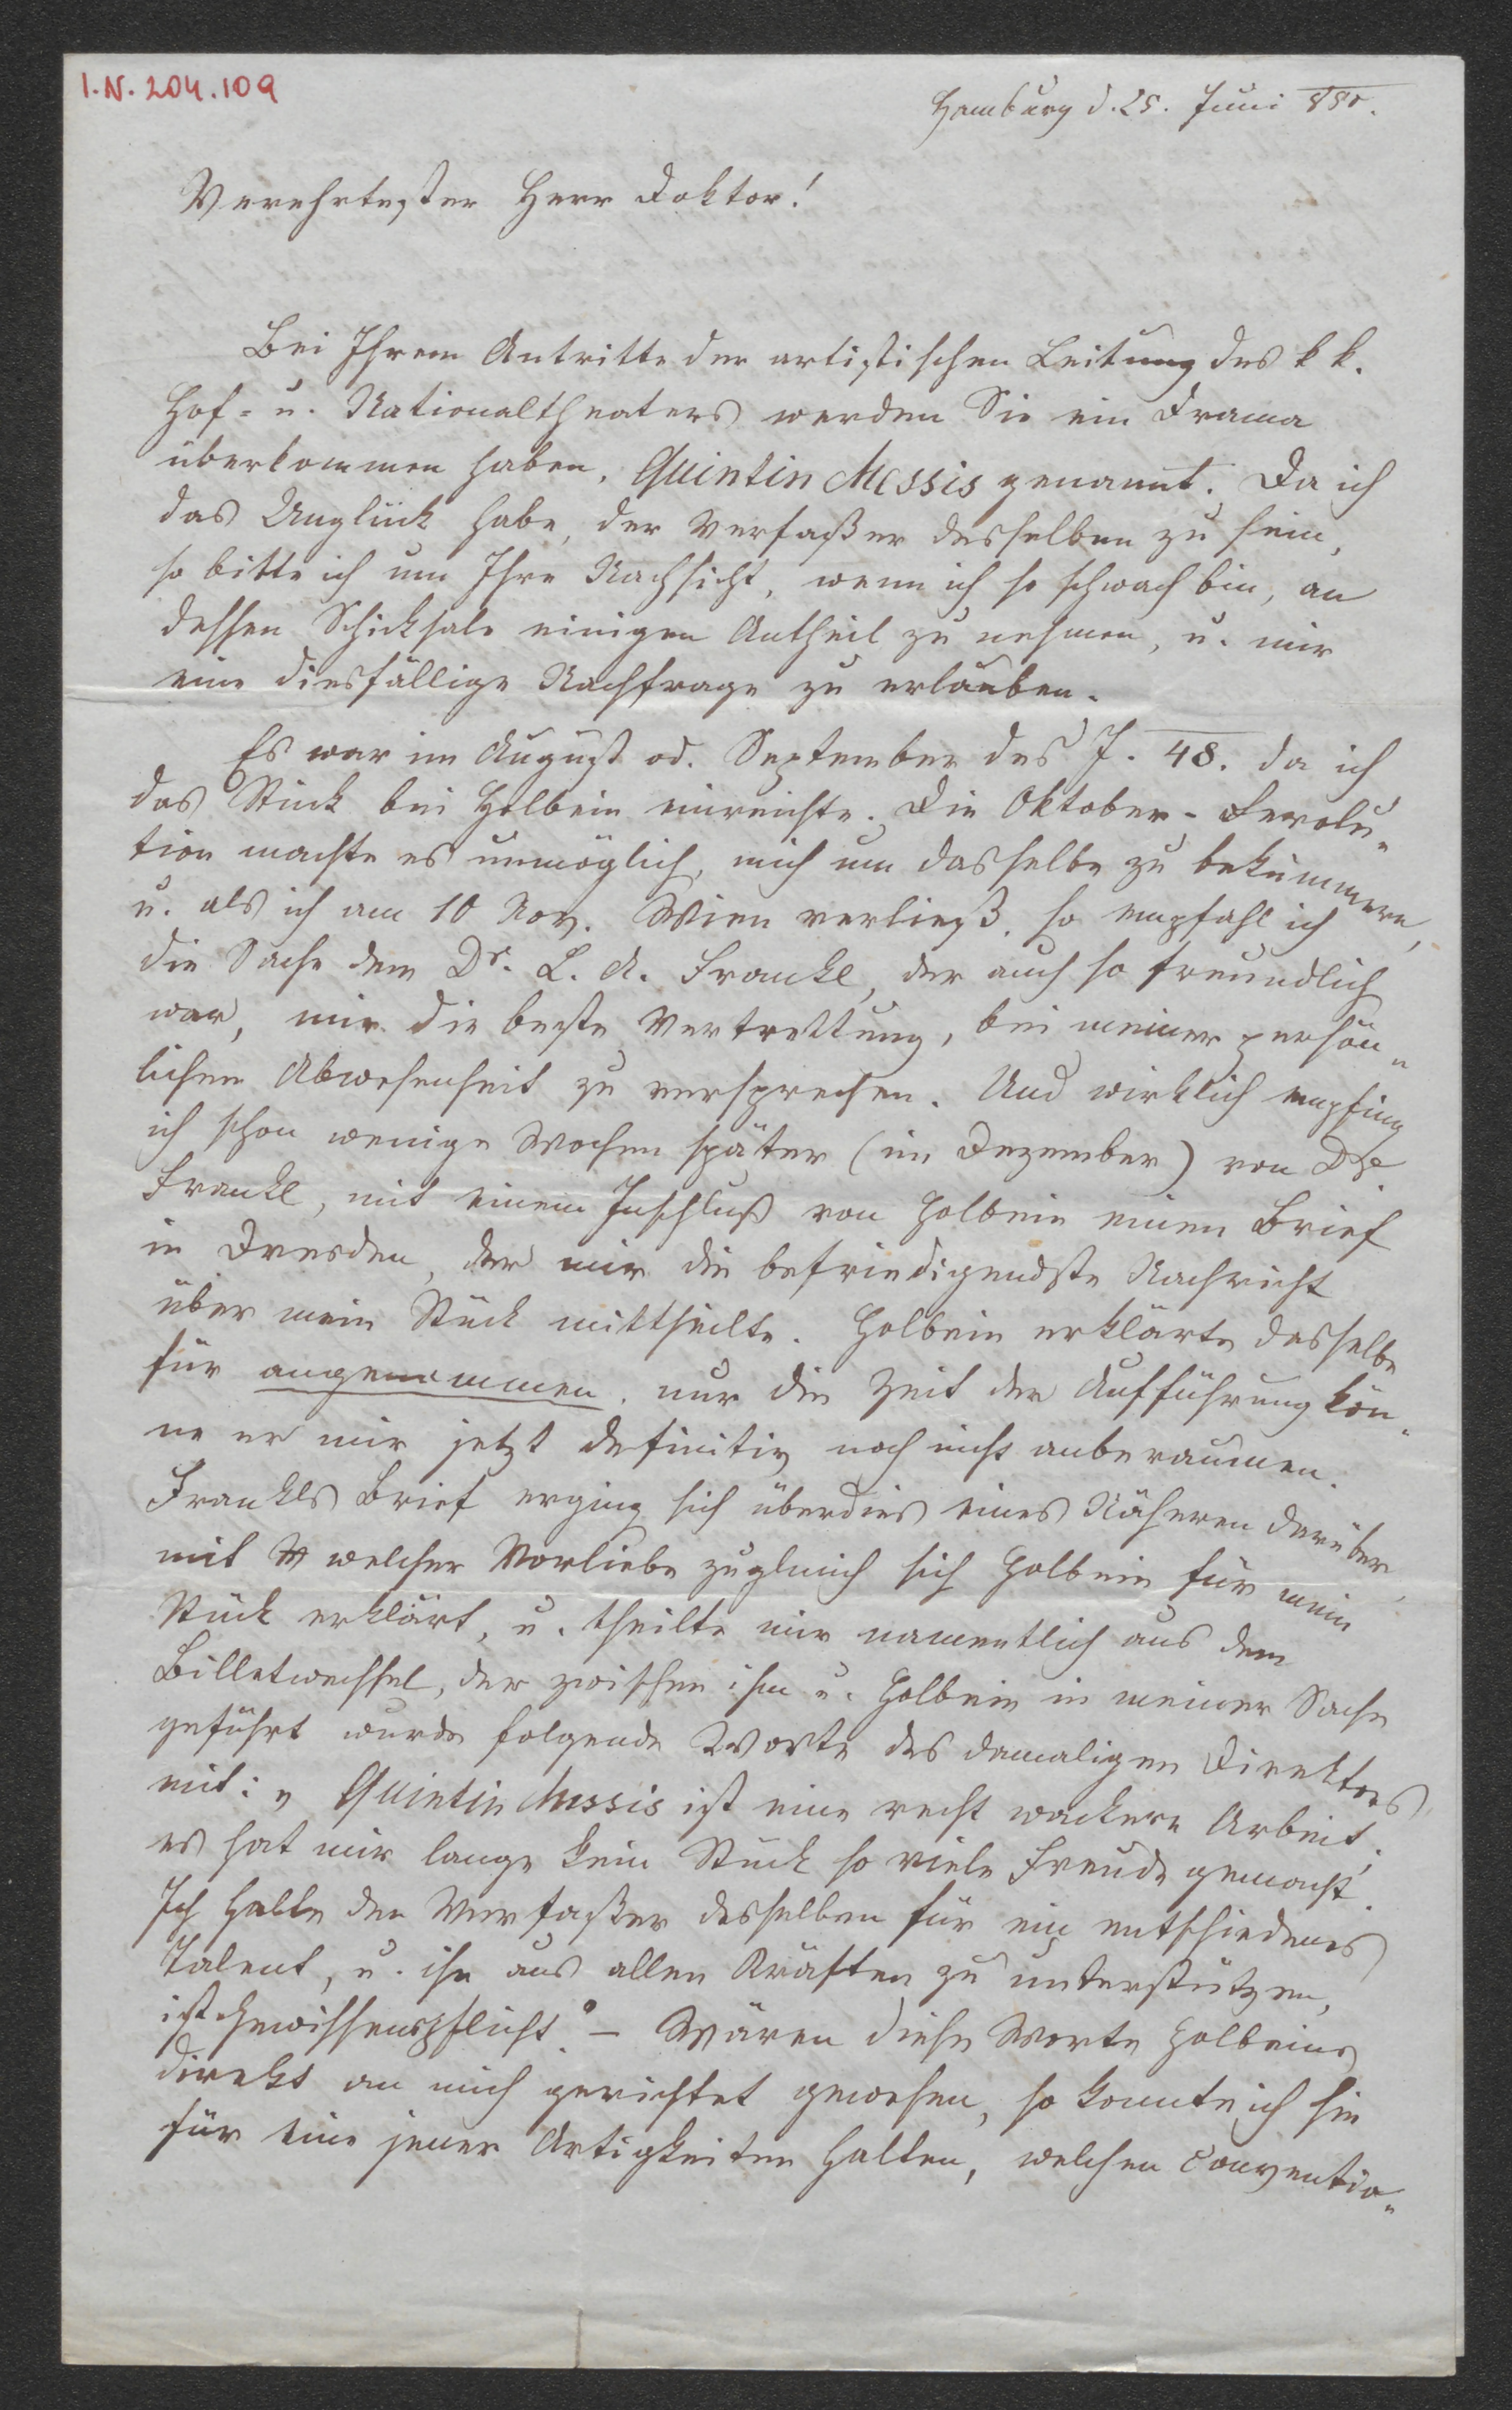 I.N. 204.109
Hamburg d. 25. Juni 850.
Verehrtester Herr Doktor!
Bei Ihrem Antritte der artistischen Leitung des k k.
Hof- u. Nationaltheaters werden Sie ein Drama
überkommen haben, Quintin Messis genannt. Da ich
das Unglück habe, der Verfaßer desselben zu sein,
so bitte ich um Ihre Nachsicht, wenn ich so schwach bin, an
dessen Schicksale einigen Antheil zu nehmen, u. mir
eine diesfällige Nachfrage zu erlauben.
Es war im August od. September des J. 48. da ich
das Stück bei Holbein einreichte. Die Oktober-Revolu-
tion machte es unmöglich, mich um dasselbe zu bekümmern,
u. als ich am 10 Nov. Wien verließ, so empfahl ich
die Sache dem Dr. L. A. Frankl, der auch so freundlich
war, mir die beste Vertrettung, bei meiner persön-
lichen Abwesenheit zu versprechen. Und wirklich empfing
ich schon wenige Wochen später (im Dezember) von Dr.
Frankl, mit einem Inschluß von Holbein einen Brief
in Dresden, der mir die befriedigendste Nachricht
über mein Stück mittheilte. Holbein erklärte dasselbe
für angenommen, nur die Zeit der Aufführung kön-
ne er mir jetzt definitiv noch nicht anberaumen.
Frankls Brief erging sich überdies eines Näheren darüber,
mit welcher Vorliebe zugleich sich Holbein für mein
Stück erklärt, u. theilte mir namentlich aus dem
Billetwechsel, der zwischen ihm u. Holbein in meiner Sache
geführt wurde folgende Worte des damaligen Direktors
mit: „Quintin Messis ist eine recht wackere Arbeit,
es hat mir lange kein Stück so viele Freude gemacht.
Ich halte den Verfaßer desselben für ein entschiedenes
Talent, u. ihn aus allen Kräften zu unterstützen,
ist Gewissenspflicht." – Wären diese Worte Holbeins
direkt an mich gerichtet gewesen, so konnte ich sie
für eine jener Artigkeiten halten, welchen conventio-